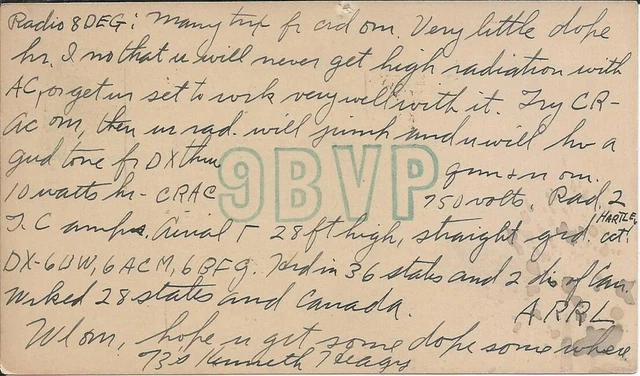 Radio 8DEG: Many tnx fr crd om. Very little dope
hr. I no that u will never get high radiation with
AC, or get ur set to work very well with it. Try CR-
AC om, then ur rad. will jump and u will hv a
gud tone fr DX thru qrm & n om.
9BVP
10 watts hr - CRAC 750 volts. Rad. 2
T.C amps. Airial T 28 ft high, straight grd. HARTLEY cct.
DX-6UW, 6ACM, 6BFG. Herd in 36 states and 2 dis of Can.
Worked 28 states and Canada. ARRL
Wl om, hope u get some dope some where.
73's Kenneth